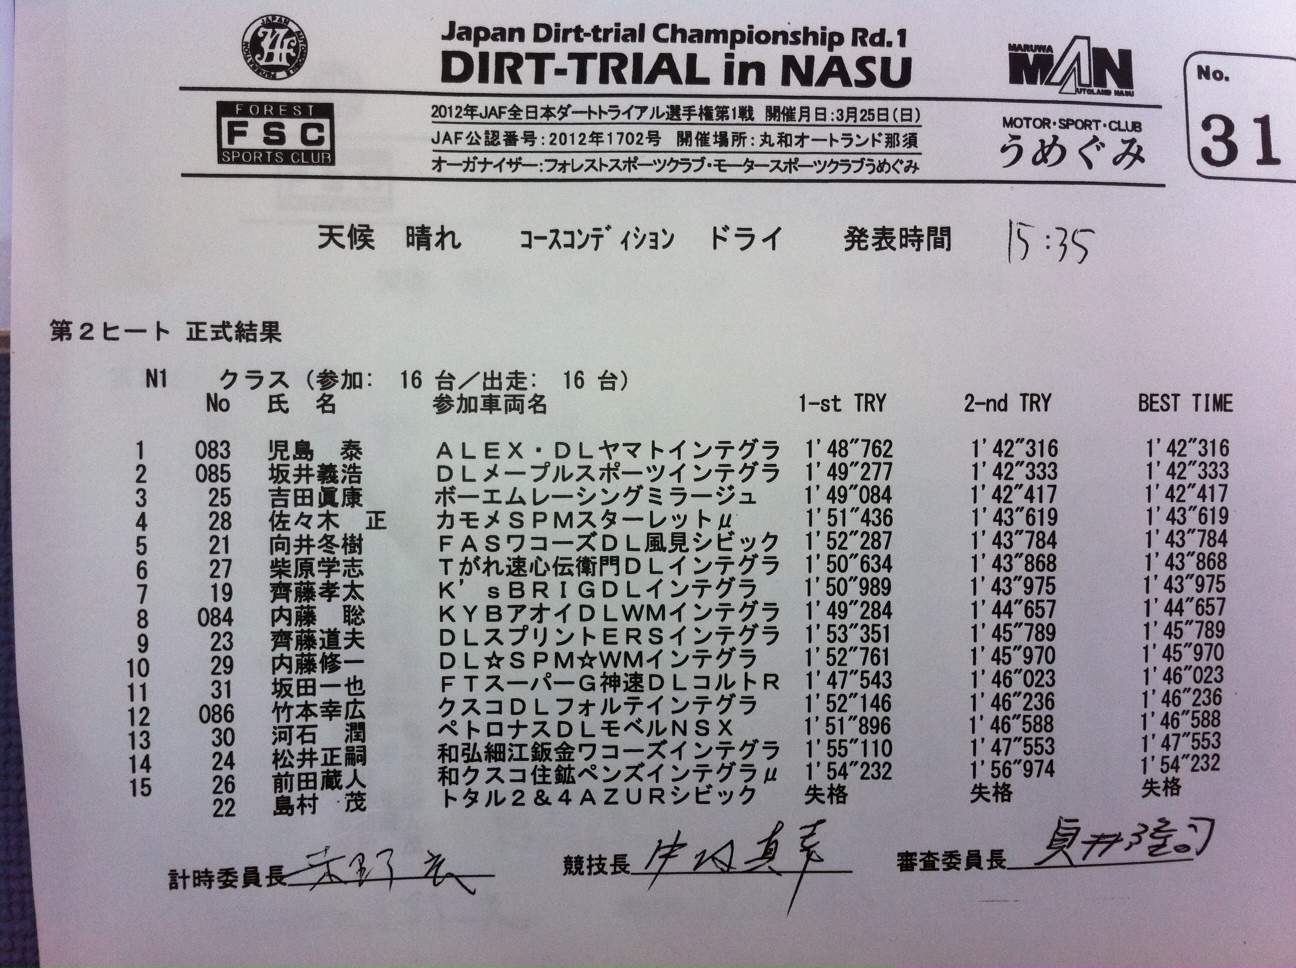 Japan Dirt-trial Championship Rd.1
DIRT-TRIAL in NASU
MARUWA
MAN
AUTOLAND NASU
No.
31
JAF
FOREST
FSC
SPORTS CLUB
2012年JAF全日本ダートトライアル選手権第1戦 開催月日:3月25日(日)
JAF公認番号:2012年1702号 開催場所:丸和オートランド那須
オーガナイザー:フォレストスポーツクラブ・モータースポーツクラブうめぐみ
MOTOR・SPORT・CLUB
うめぐみ
天候 晴れ ｺｰｽｺﾝﾃﾞｨｼｮﾝ ドライ 発表時間 15:35
第２ヒート 正式結果
N1 クラス (参加: 16 台／出走: 16 台)
No 氏 名 参加車両名 1-st TRY 2-nd TRY BEST TIME
1 083 児島 泰 ＡＬＥＸ・ＤＬヤマトインテグラ 1'48"762 1'42"316 1'42"316
2 085 坂井義浩 ＤＬメープルスポーツインテグラ 1'49"277 1'42"333 1'42"333
3 25 吉田眞康 ボーエムレーシングミラージュ 1'49"084 1'42"417 1'42"417
4 28 佐々木 正 カモメＳＰＭスターレットμ 1'51"436 1'43"619 1'43"619
5 21 向井冬樹 ＦＡＳワコーズＤＬ風見シビック 1'52"287 1'43"784 1'43"784
6 27 柴原学志 Ｔがれ速心伝衛門ＤＬインテグラ 1'50"634 1'43"868 1'43"868
7 19 齊藤孝太 Ｋ'ｓＢＲＩＧＤＬインテグラ 1'50"989 1'43"975 1'43"975
8 084 内藤 聡 ＫＹＢアオイＤＬＷＭインテグラ 1'49"284 1'44"657 1'44"657
9 23 齊藤道夫 ＤＬスプリントＥＲＳインテグラ 1'53"351 1'45"789 1'45"789
10 29 内藤修一 ＤＬ☆ＳＰＭ☆ＷＭインテグラ 1'52"761 1'45"970 1'45"970
11 31 坂田一也 ＦＴスーパーＧ神速ＤＬコルトＲ 1'47"543 1'46"023 1'46"023
12 086 竹本幸広 クスコＤＬフォルテインテグラ 1'52"146 1'46"236 1'46"236
13 30 河石 潤 ペトロナスＤＬモベルＮＳＸ 1'51"896 1'46"588 1'46"588
14 24 松井正嗣 和弘細江鈑金ワコーズインテグラ 1'55"110 1'47"553 1'47"553
15 26 前田蔵人 和クスコ住鉱ペンズインテグラμ 1'54"232 1'56"974 1'54"232
22 島村 茂 トタル２＆４ＡＺＵＲシビック 失格 失格 失格
計時委員長 競技長 審査委員長